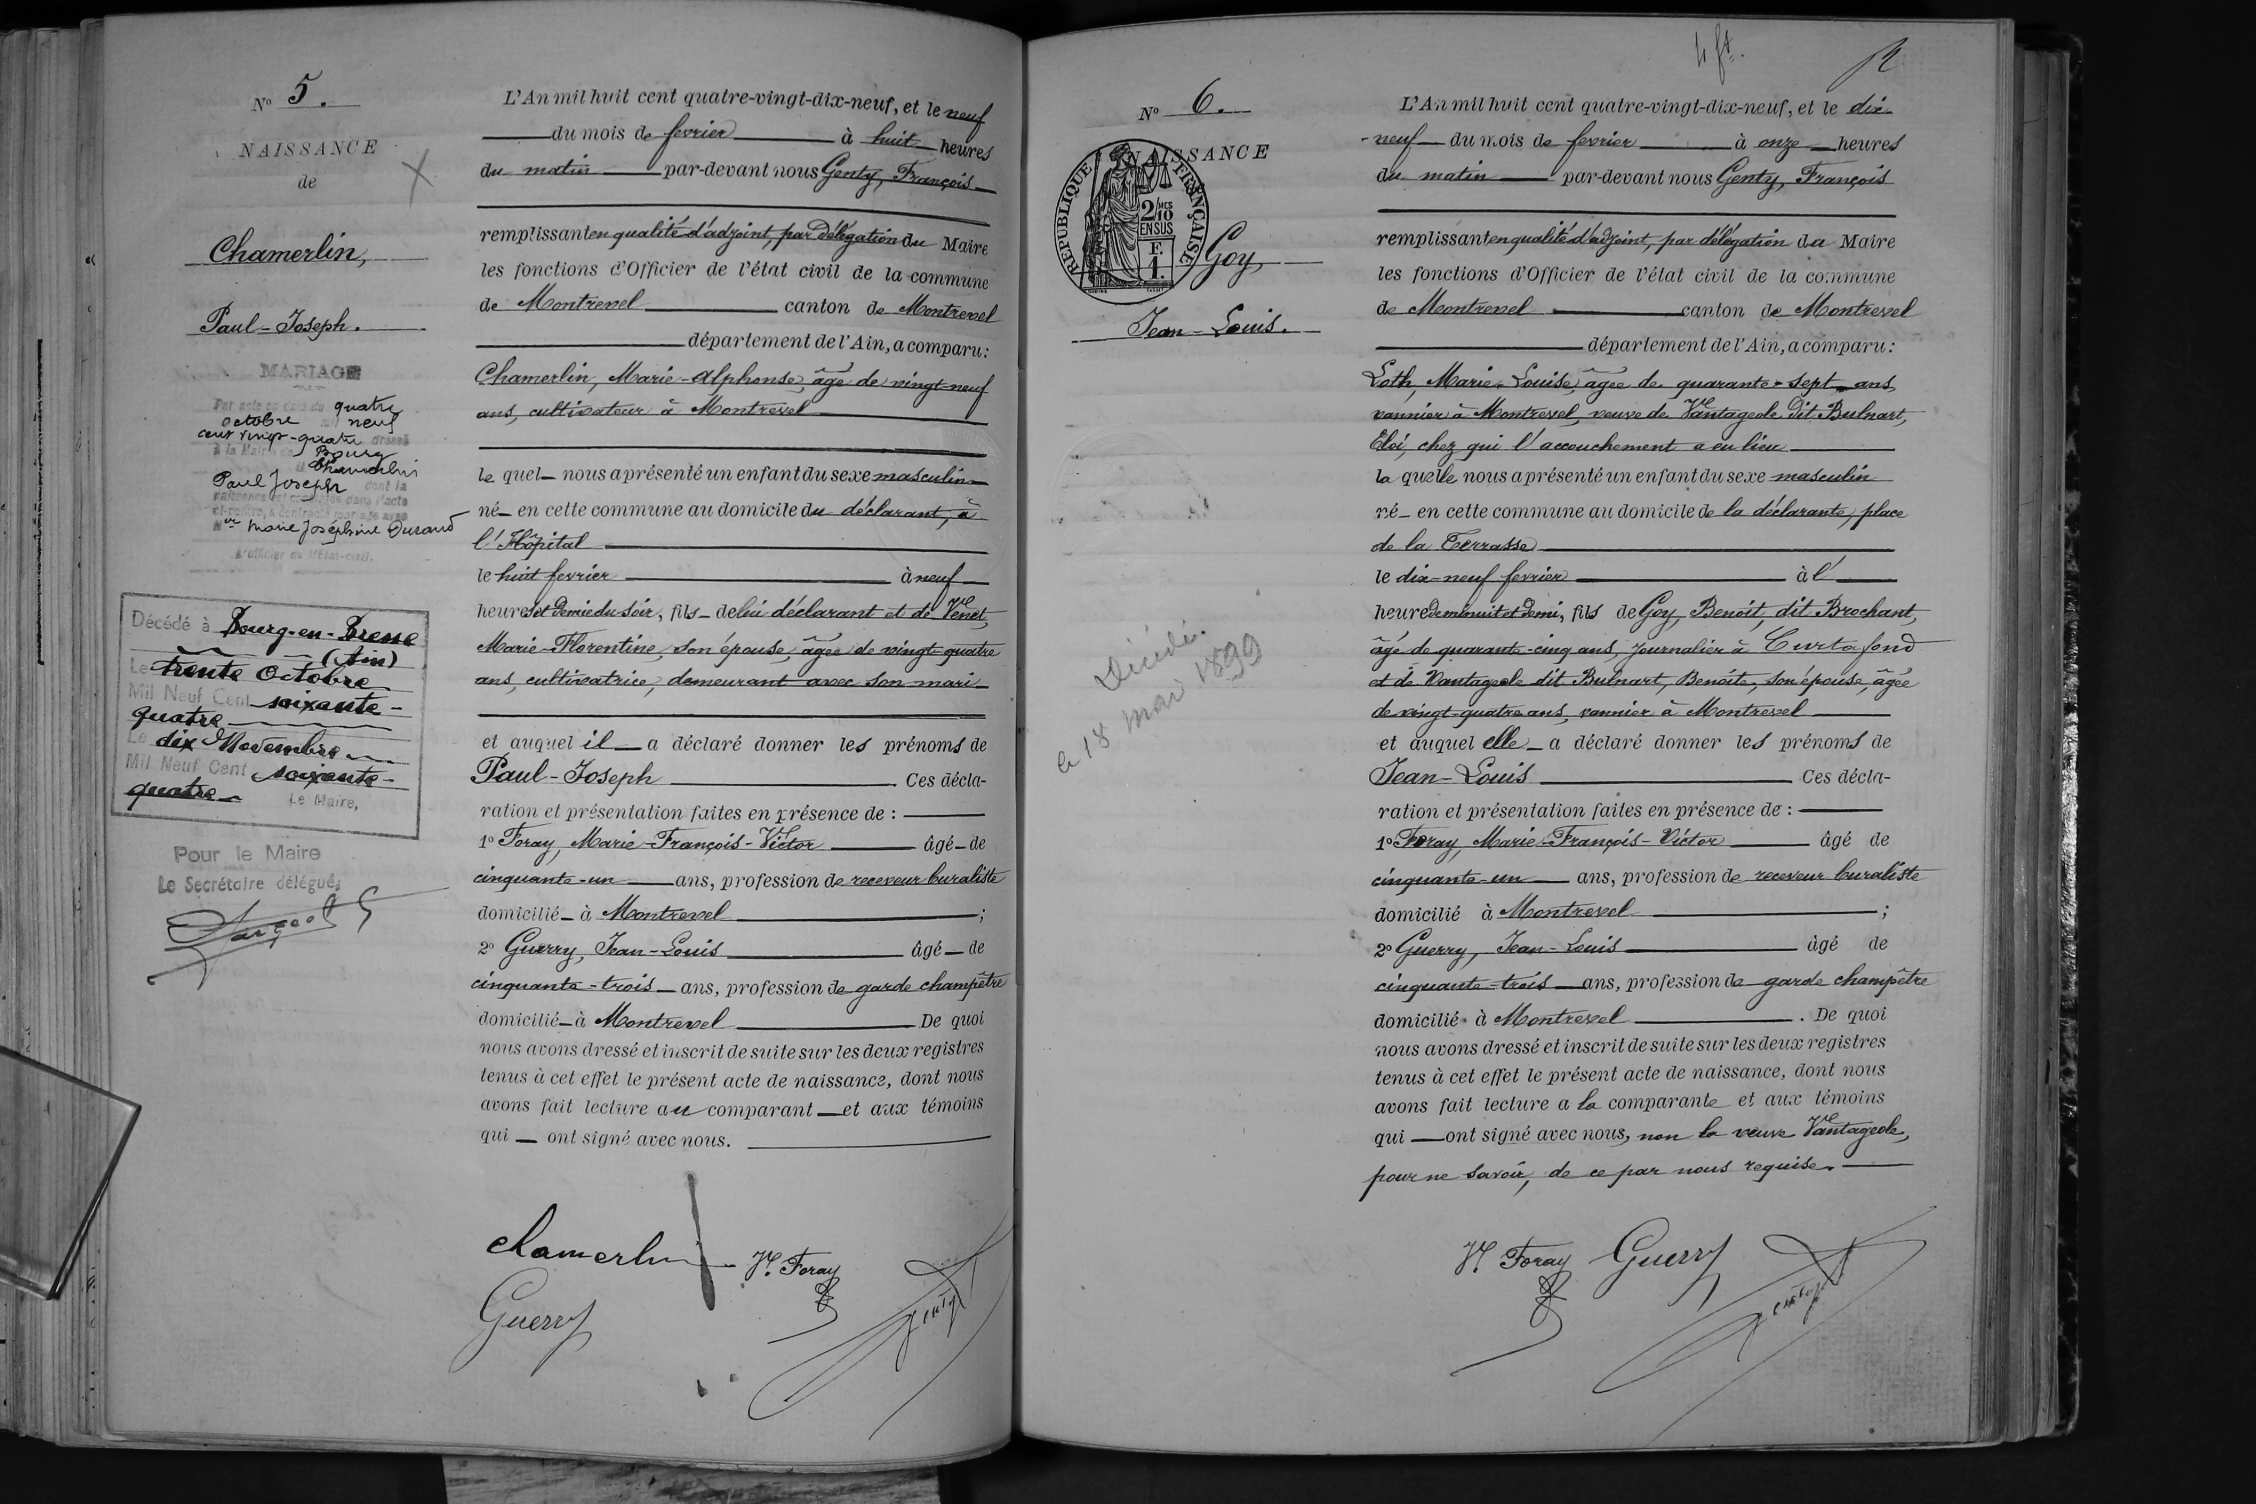 N° 5.
NAISSANCE
de
Chamerlin,
Paul-Joseph.
MARIAGE
Par acte en date du quatre
octobre mil neuf
cent vingt-quatre dressé
à la Mairie de Bourg
Chamerlin
Paul Joseph dont la
naissance est constatée dans l'acte
ci-contre, a contracté mariage avec
Marie Joséphine Durand
L'officier de l'État-civil.
Décédé à Bourg-en-Bresse
(Ain)
Le trente Octobre
Mil Neuf Cent soixante-
quatre
Le dix Novembre
Mil Neuf Cent soixante-
quatre
Le Maire,
Pour le Maire
Le Secrétaire délégué,
L'An mil huit cent quatre-vingt-dix-neuf, et le neuf
du mois de fevrier à huit heures
du matin par-devant nous Genty, François
remplissant en qualité d'adjoint, par Délégation du Maire
les fonctions d'Officier de l'état civil de la commune
de Montrevel canton de Montrevel
département de l'Ain, a comparu:
Chamerlin, Marie-Alphonse, âgé de vingt-neuf
ans, cultivateur à Montrevel
le quel nous a présenté un enfant du sexe masculin
né en cette commune au domicile du déclarant, à
l'Hôpital
le huit fevrier à neuf
heures et demie du soir, fils de lui déclarant et de Venet,
Marie-Florentine, son épouse, âgée de vingt-quatre
ans, cultivatrice, demeurant avec son mari
et auquel il a déclaré donner les prénoms de
Paul-Joseph Ces décla-
ration et présentation faites en présence de :
1° Foray, Marie-François-Victor âgé de
cinquante-un ans, profession de receveur buraliste
domicilié à Montrevel ;
2° Guerry, Jean-Louis âgé de
cinquante-trois ans, profession de garde champêtre
domicilié à Montrevel De quoi
nous avons dressé et inscrit de suite sur les deux registres
tenus à cet effet le présent acte de naissance, dont nous
avons fait lecture au comparant et aux témoins
qui ont signé avec nous.
Chamerlin Vr. Foray
Guerry Genty
4 ft.
N° 6.
NAISSANCE
REPUBLIQUE FRANÇAISE
2/10 MES
EN SUS
F.
1.
Goy,
Jean-Louis.
Décédé
le 18 mai 1899
L'An mil huit cent quatre-vingt-dix-neuf, et le dix-
-neuf du mois de fevrier à onze heures
du matin par-devant nous Genty, François
remplissant en qualité d'adjoint, par délégation du Maire
les fonctions d'Officier de l'état civil de la commune
de Montrevel canton de Montrevel
département de l'Ain, a comparu:
Loth, Marie-Louise, âgée de quarante-sept ans,
vannier à Montrevel, veuve de Vantageole dit Bulnart,
Eloi, chez qui l'accouchement a eu lieu
la quelle nous a présenté un enfant du sexe masculin
né en cette commune au domicile de la déclarante, place
de la Terrasse
le dix-neuf fevrier à l'
heure de minuit et demi, fils de Goy, Benoit, dit Brochant,
âgé de quarante-cinq ans, journalier à Curtafond
et de Vantageole dit Bulnart, Benoîte, son épouse, âgée
de vingt-quatre ans, vannier à Montrevel
et auquel elle a déclaré donner les prénoms de
Jean-Louis Ces décla-
ration et présentation faites en présence de :
1° Foray, Marie-François-Victor âgé de
cinquante-un ans, profession de receveur buraliste
domicilié à Montrevel ;
2° Guerry, Jean-Louis âgé de
cinquante-trois ans, profession de garde champêtre
domicilié à Montrevel . De quoi
nous avons dressé et inscrit de suite sur les deux registres
tenus à cet effet le présent acte de naissance, dont nous
avons fait lecture a la comparante et aux témoins
qui ont signé avec nous, non la veuve Vantageole,
pour ne savoir, de ce par nous requise.
Vr. Foray Guerry
Genty